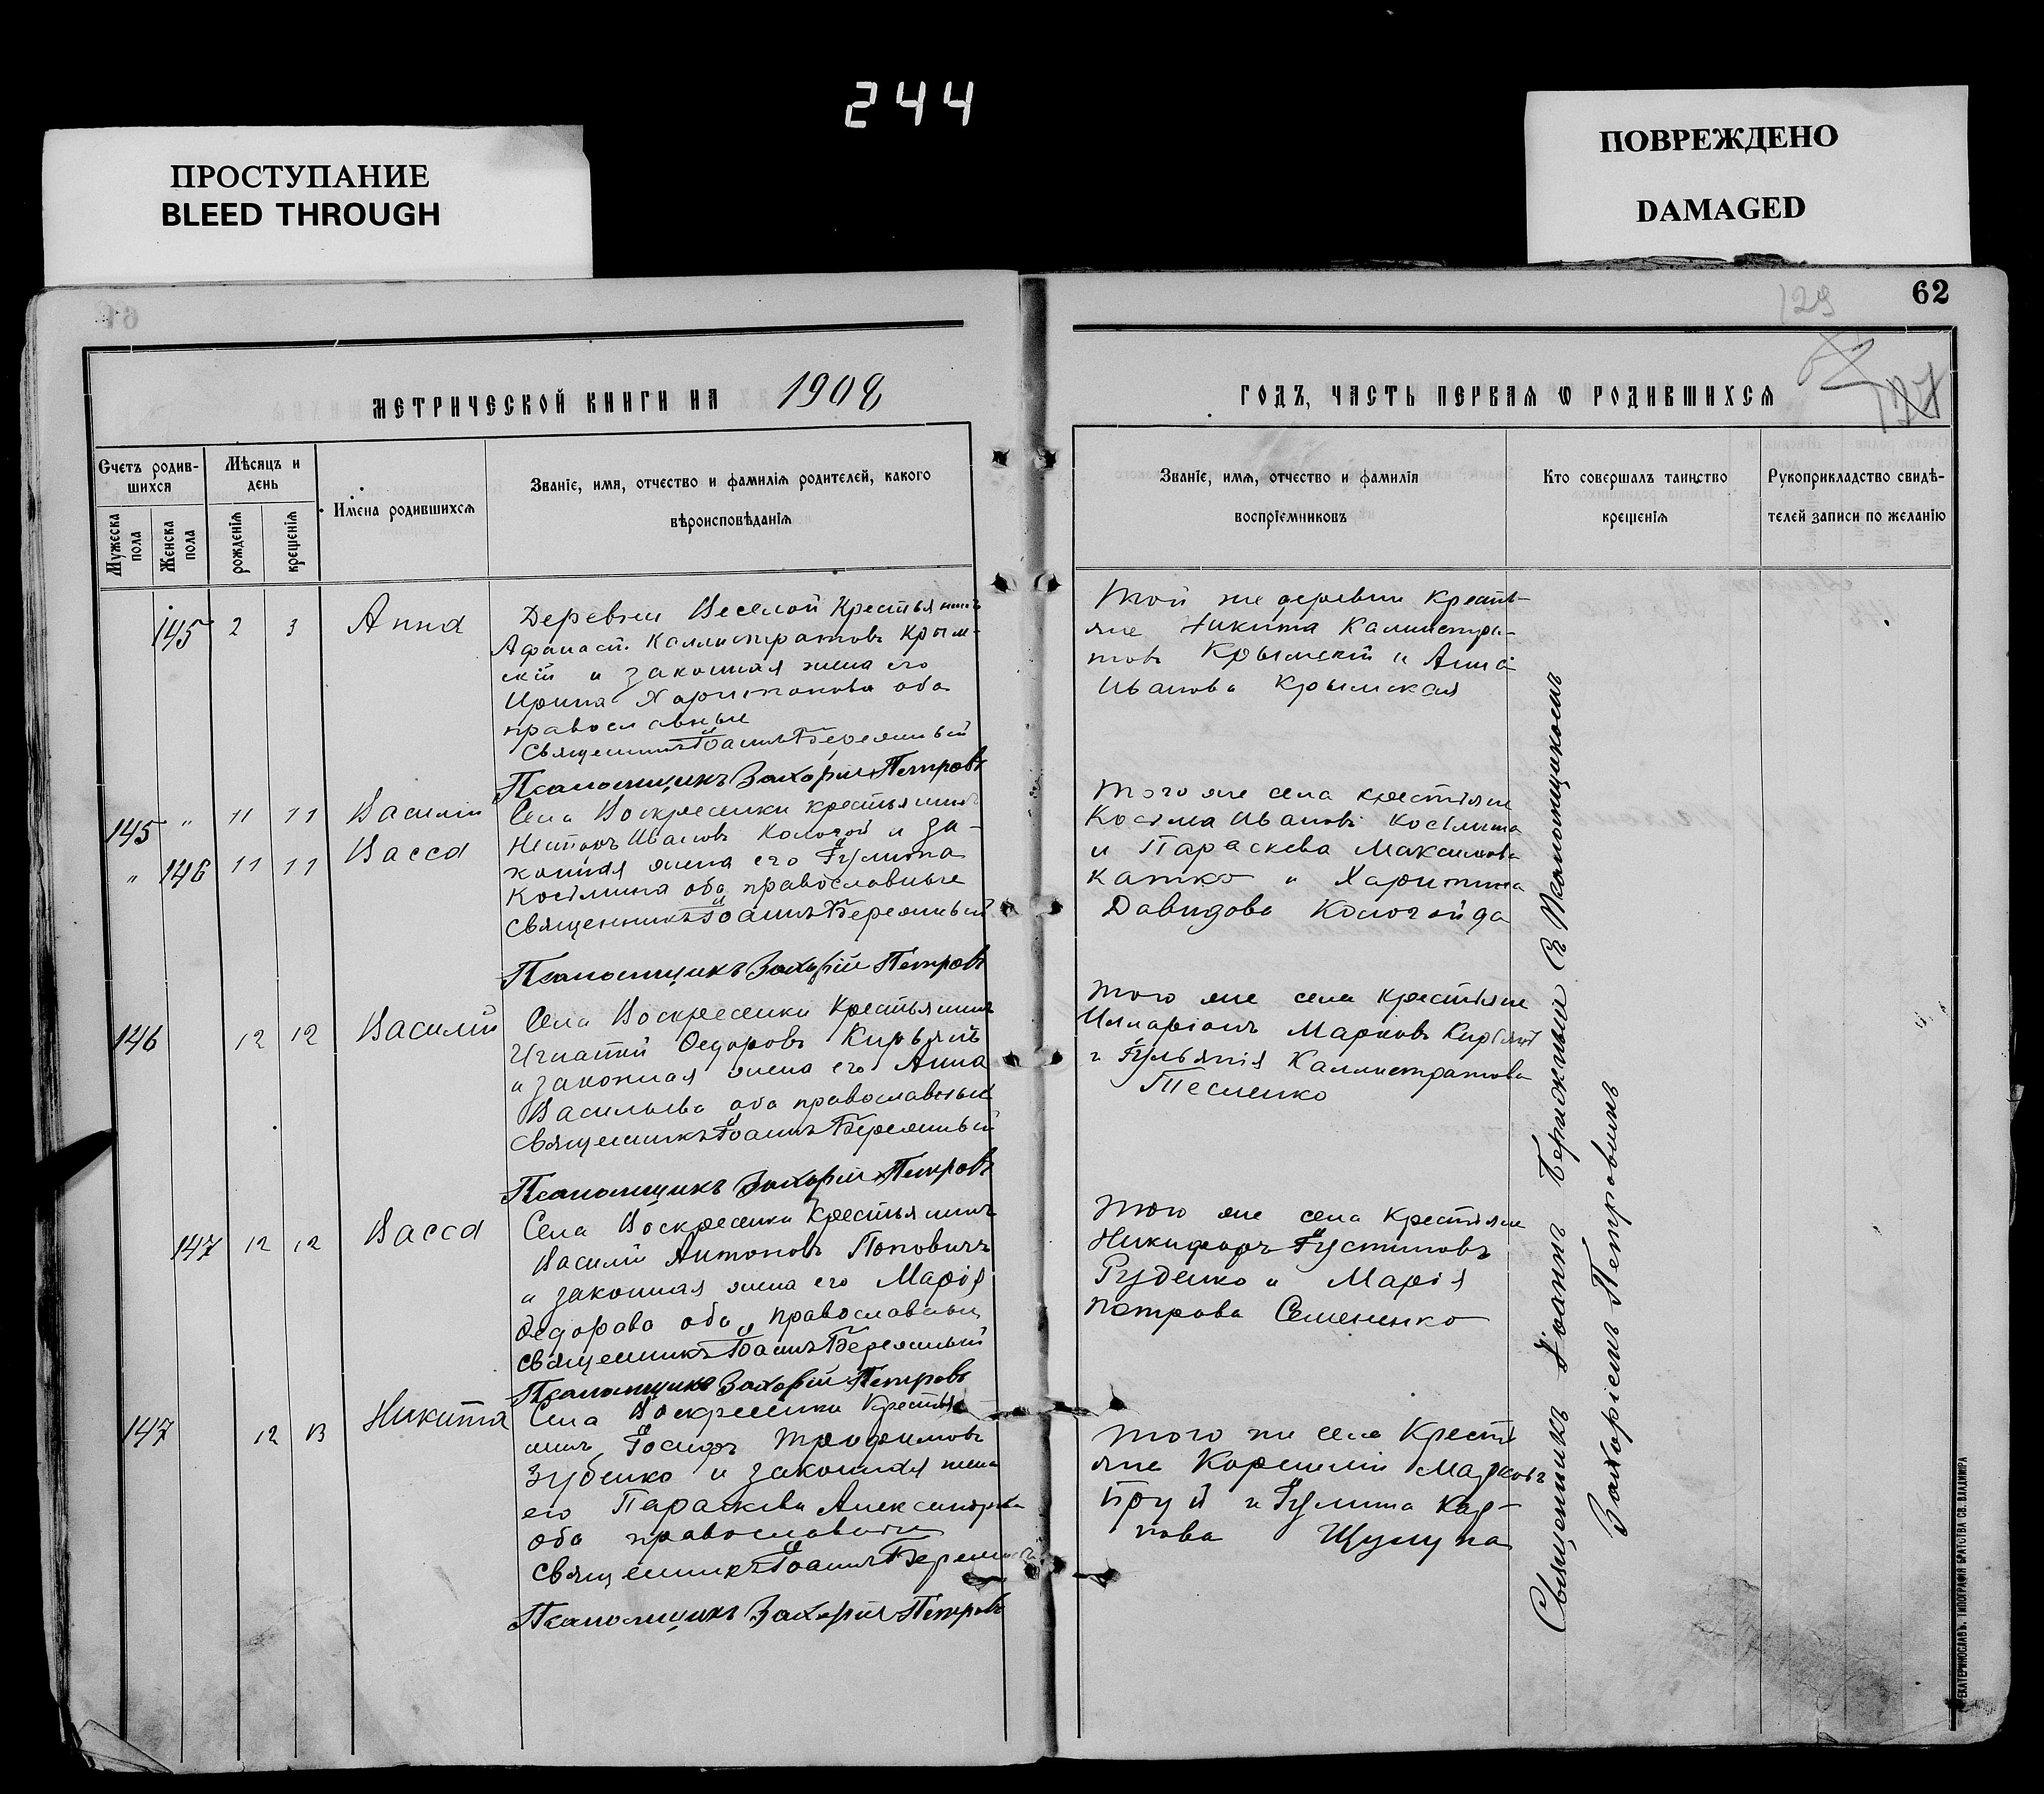 244
ПРОСТУПАНИЕ
BLEED THROUGH
ПОВРЕЖДЕНО
DAMAGED
129
62
МЕТРИЧЕСКОЙ КНИГИ НА 1908
ГОДЪ, ЧАСТЬ ПЕРВАЯ Ѡ РОДИВШИХСЯ
Счетъ родив-
шихся
Мужеска пола
Женска пола
Мѣсяцъ и
день
рожденія
крещенія
Имена родившихся
Званіе, имя, отчество и фамилія родителей, какого
вѣроисповѣданія
Званіе, имя, отчество и фамилія
воспріемниковъ
Кто совершалъ таинство
крещенія
Рукоприкладство свидѣ-
телей записи по желанію
145 2 3 Анна
Деревни Веселой Крестьянинъ
Афанасій Каллистратовъ Крым-
скій и законная жена его
Ирина Харитонова оба
православные
Священникъ Іоаннъ Бережный
Псаломщикъ Захарій Петровъ
Той же деревни Крестья-
яне Никита Каллистра-
товъ Крымскій и Анна
Иванова Крымская
145 " 11 11 Василій
" 146 11 11 Васса
Села Воскресенки крестьянинъ
Несторъ Ивановъ и за-
конная жена его Іулита
Косьмина оба православные
Священникъ Іоаннъ Бережный
Псаломщикъ Захарій Петровъ
Того же села крестьяне
Косьма Ивановъ
и Параскева Максимова
Катко и Харитина
Давидова Кологойда
146 12 12 Василій
Села Воскресенки Крестьянинъ
Игнатій Ѳедоровъ Кирьянъ
и законная жена его Анна
Васильева оба православные
Священникъ Іоаннъ Бережный
Псаломщикъ Захарій Петровъ
Того же села Крестьяне
Илларіонъ Марковъ
и Іульянія Каллистратова
Тесленко
147 12 12 Васса
Села Воскресенки Крестьянинъ
Василій Антоновъ Поповичъ
и законная жена его Марія
Ѳедорова оба православные
Священникъ Іоаннъ Бережный
Псаломщикъ Захарій Петровъ
Того же села Крестьяне
Никифоръ Іустиновъ
Руденко и Марія
Петрова Семененко
147 12 13 Никита
Села Воскресенки Крестья-
нинъ Іосифъ Трофимовъ
Зубенко и законная жена
его Параскева Александрова
оба православные
Священникъ Іоаннъ Бережный
Псаломщикъ Захарій Петровъ
Того же села Крестья-
яне Корнилій Марковъ
и Іулита Кар-
пова
Священникъ Іоаннъ Бережный съ Псаломщикомъ
Захаріемъ Петровымъ
ЕКАТЕРИНОСЛАВЪ. ТИПОГРАФІЯ БРАТСТВА СВ. ВЛАДИМІРА